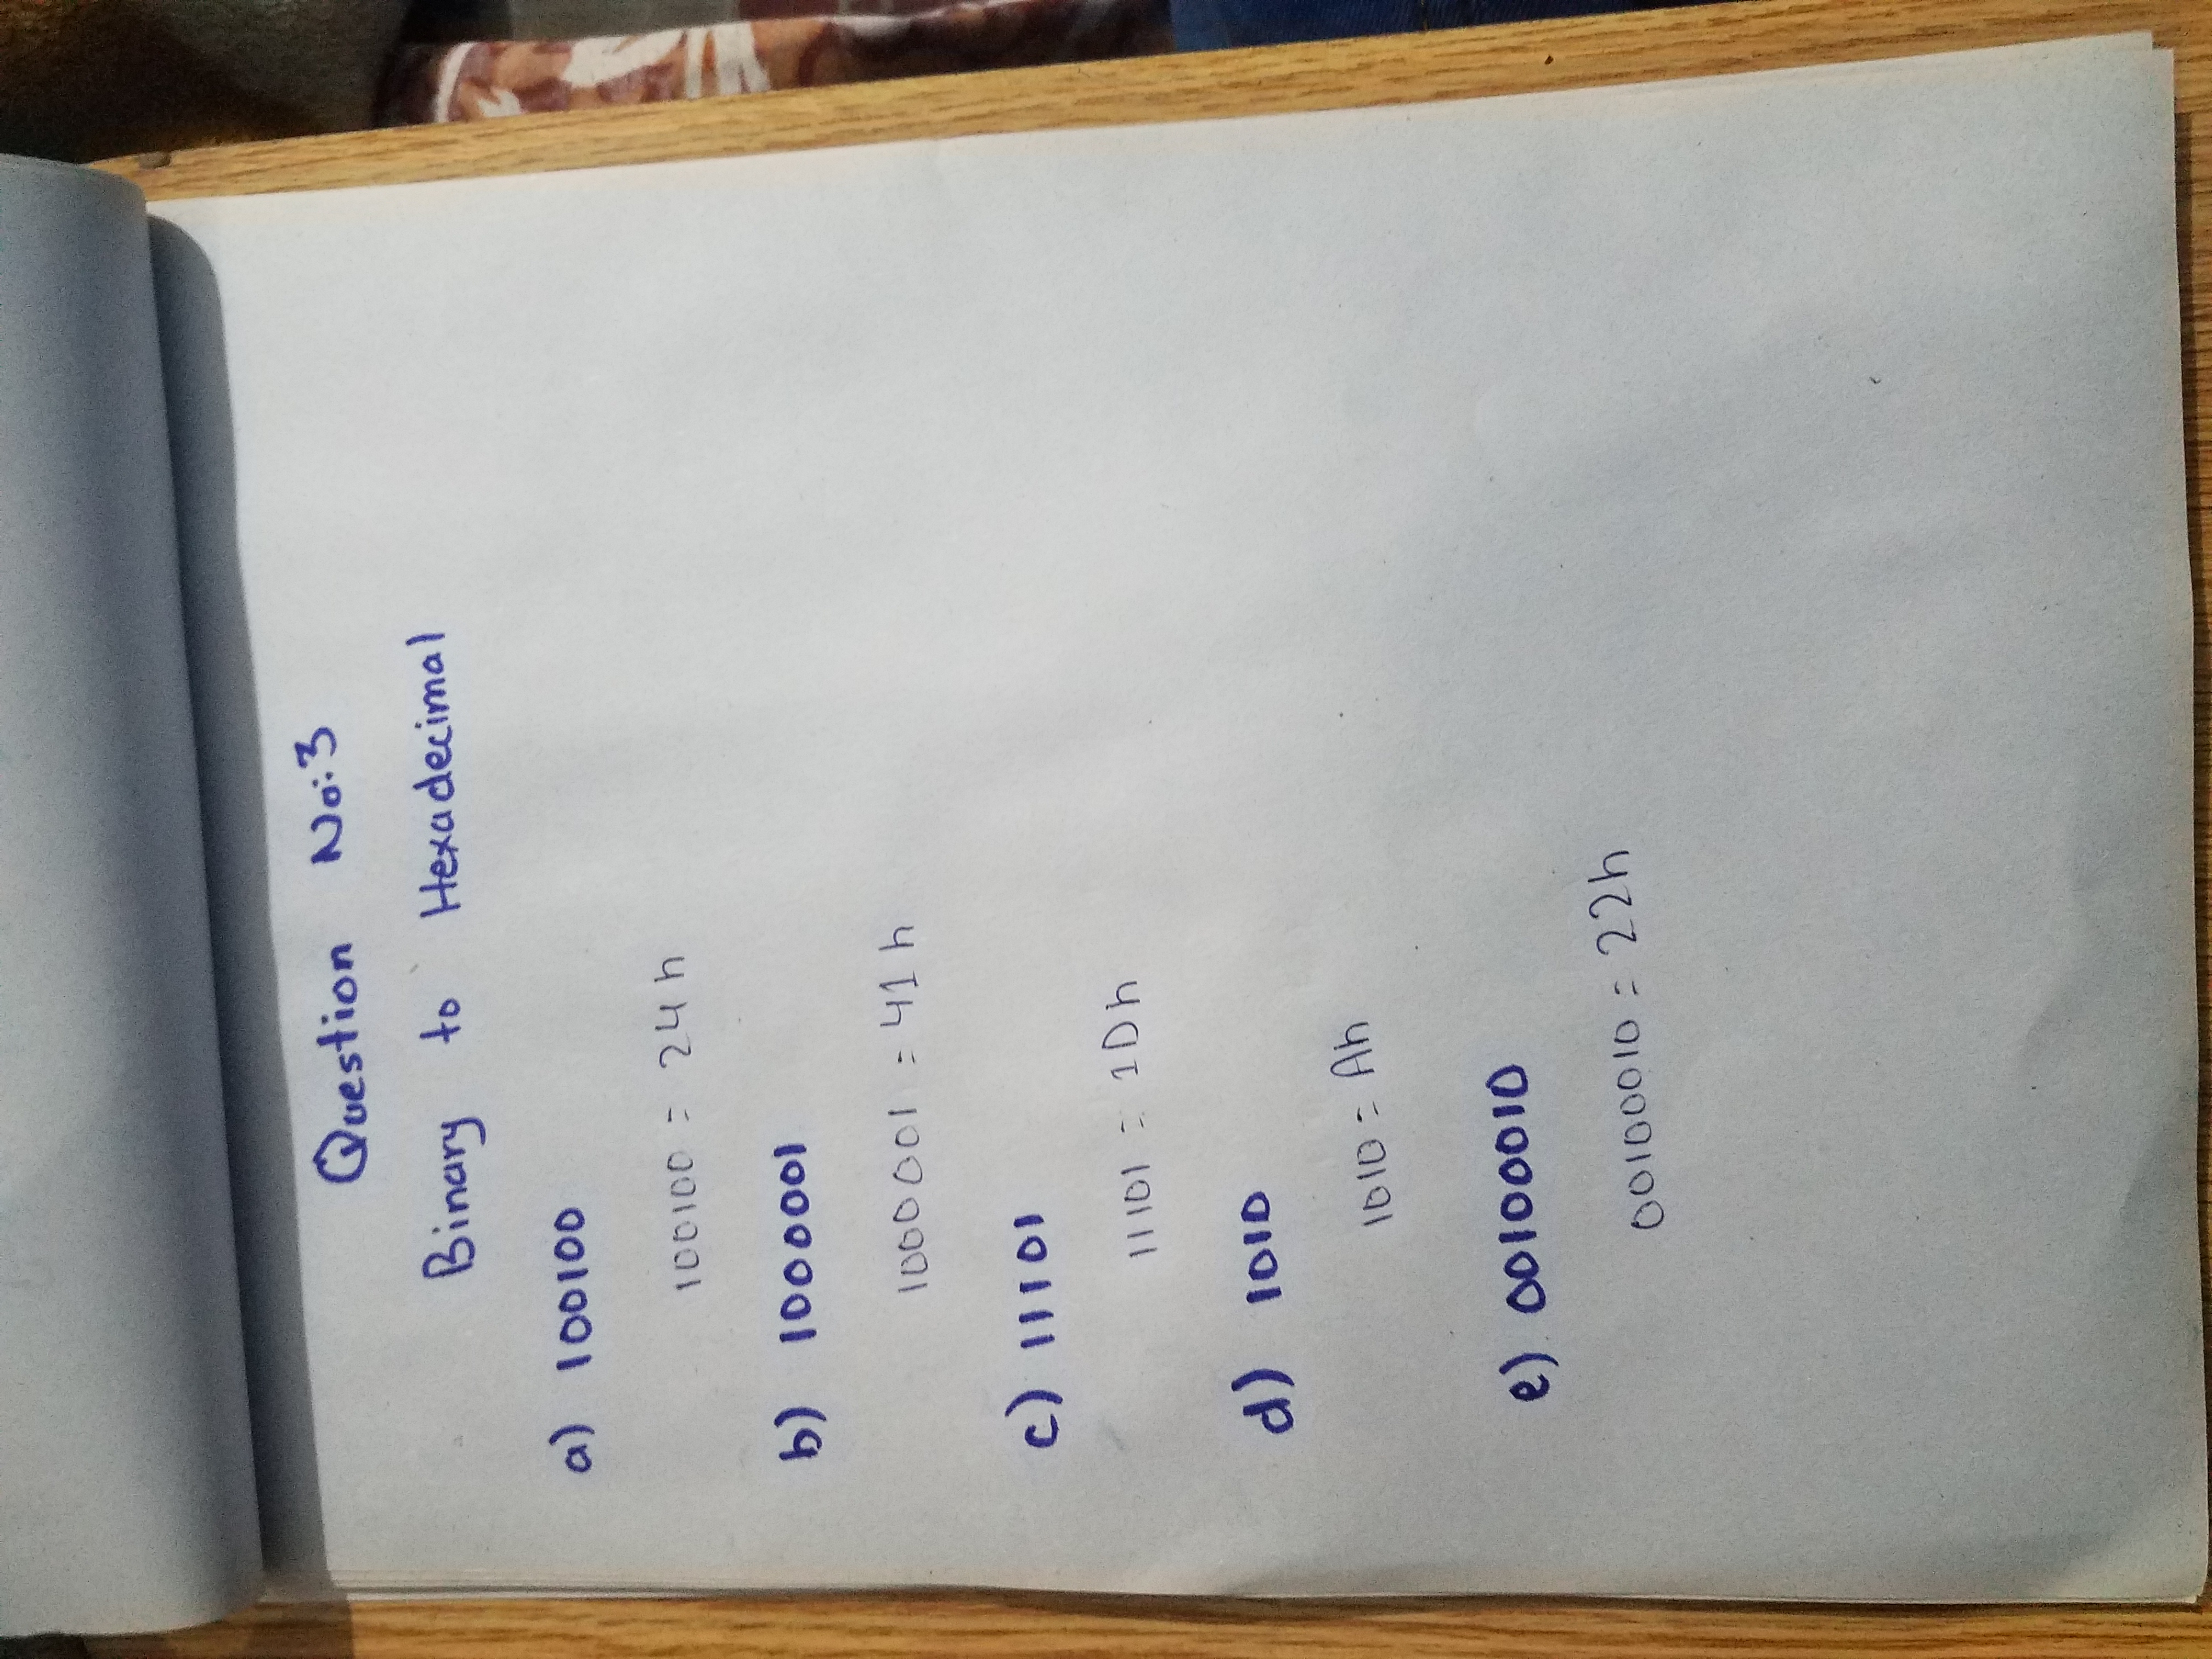 Question No:3
Binary to Hexadecimal
a) 100100
100100 = 24h
b) 1000001
1000001 = 41h
c) 11101
11101 = 1Dh
d) 1010
1010 = Ah
e) 00100010
00100010 = 22h